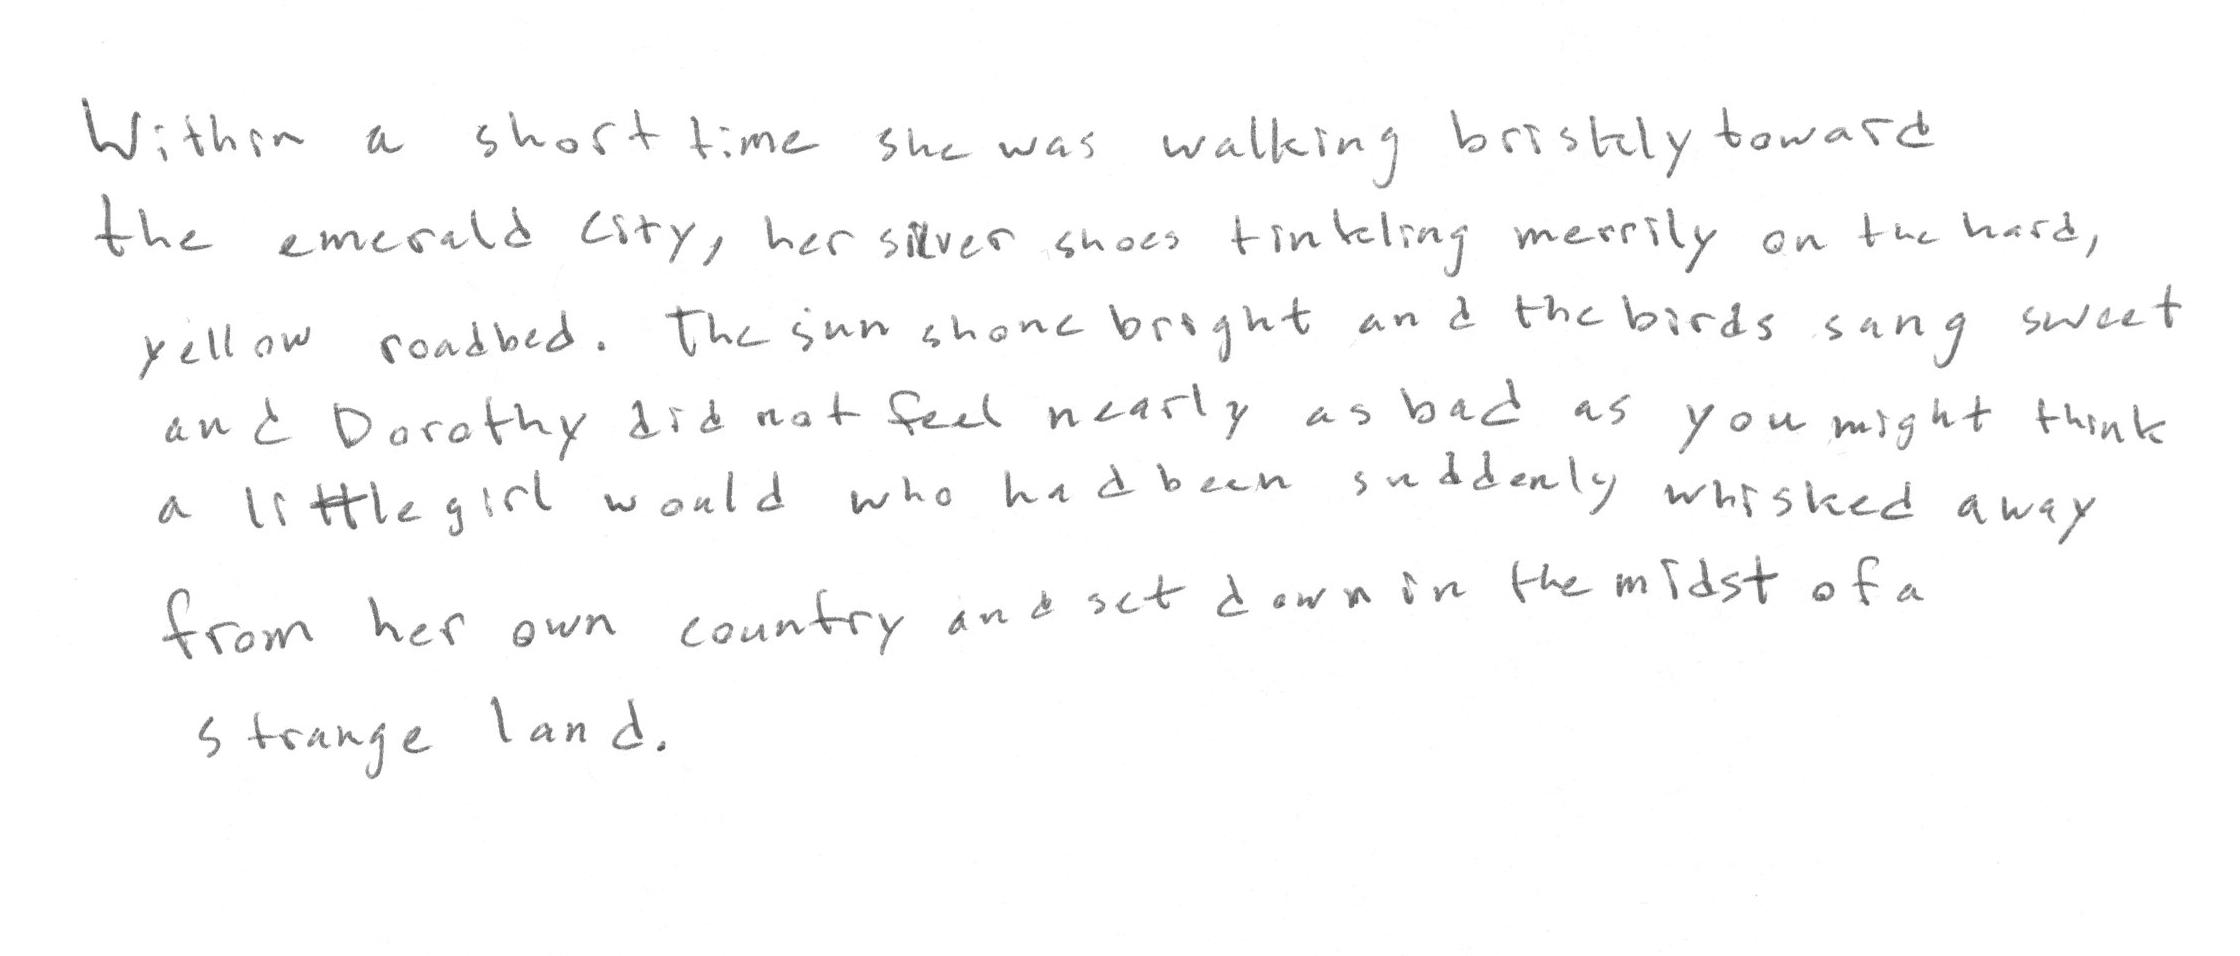 Within a short time she was walking briskly toward
the emerald city, her silver shoes tinkling merrily on the hard,
yellow roadbed. The sun shone bright and the birds sang sweet
and Dorothy did not feel nearly as bad as you might think
a little girl would who had been suddenly whisked away
from her own country and set down in the midst of a
strange land.